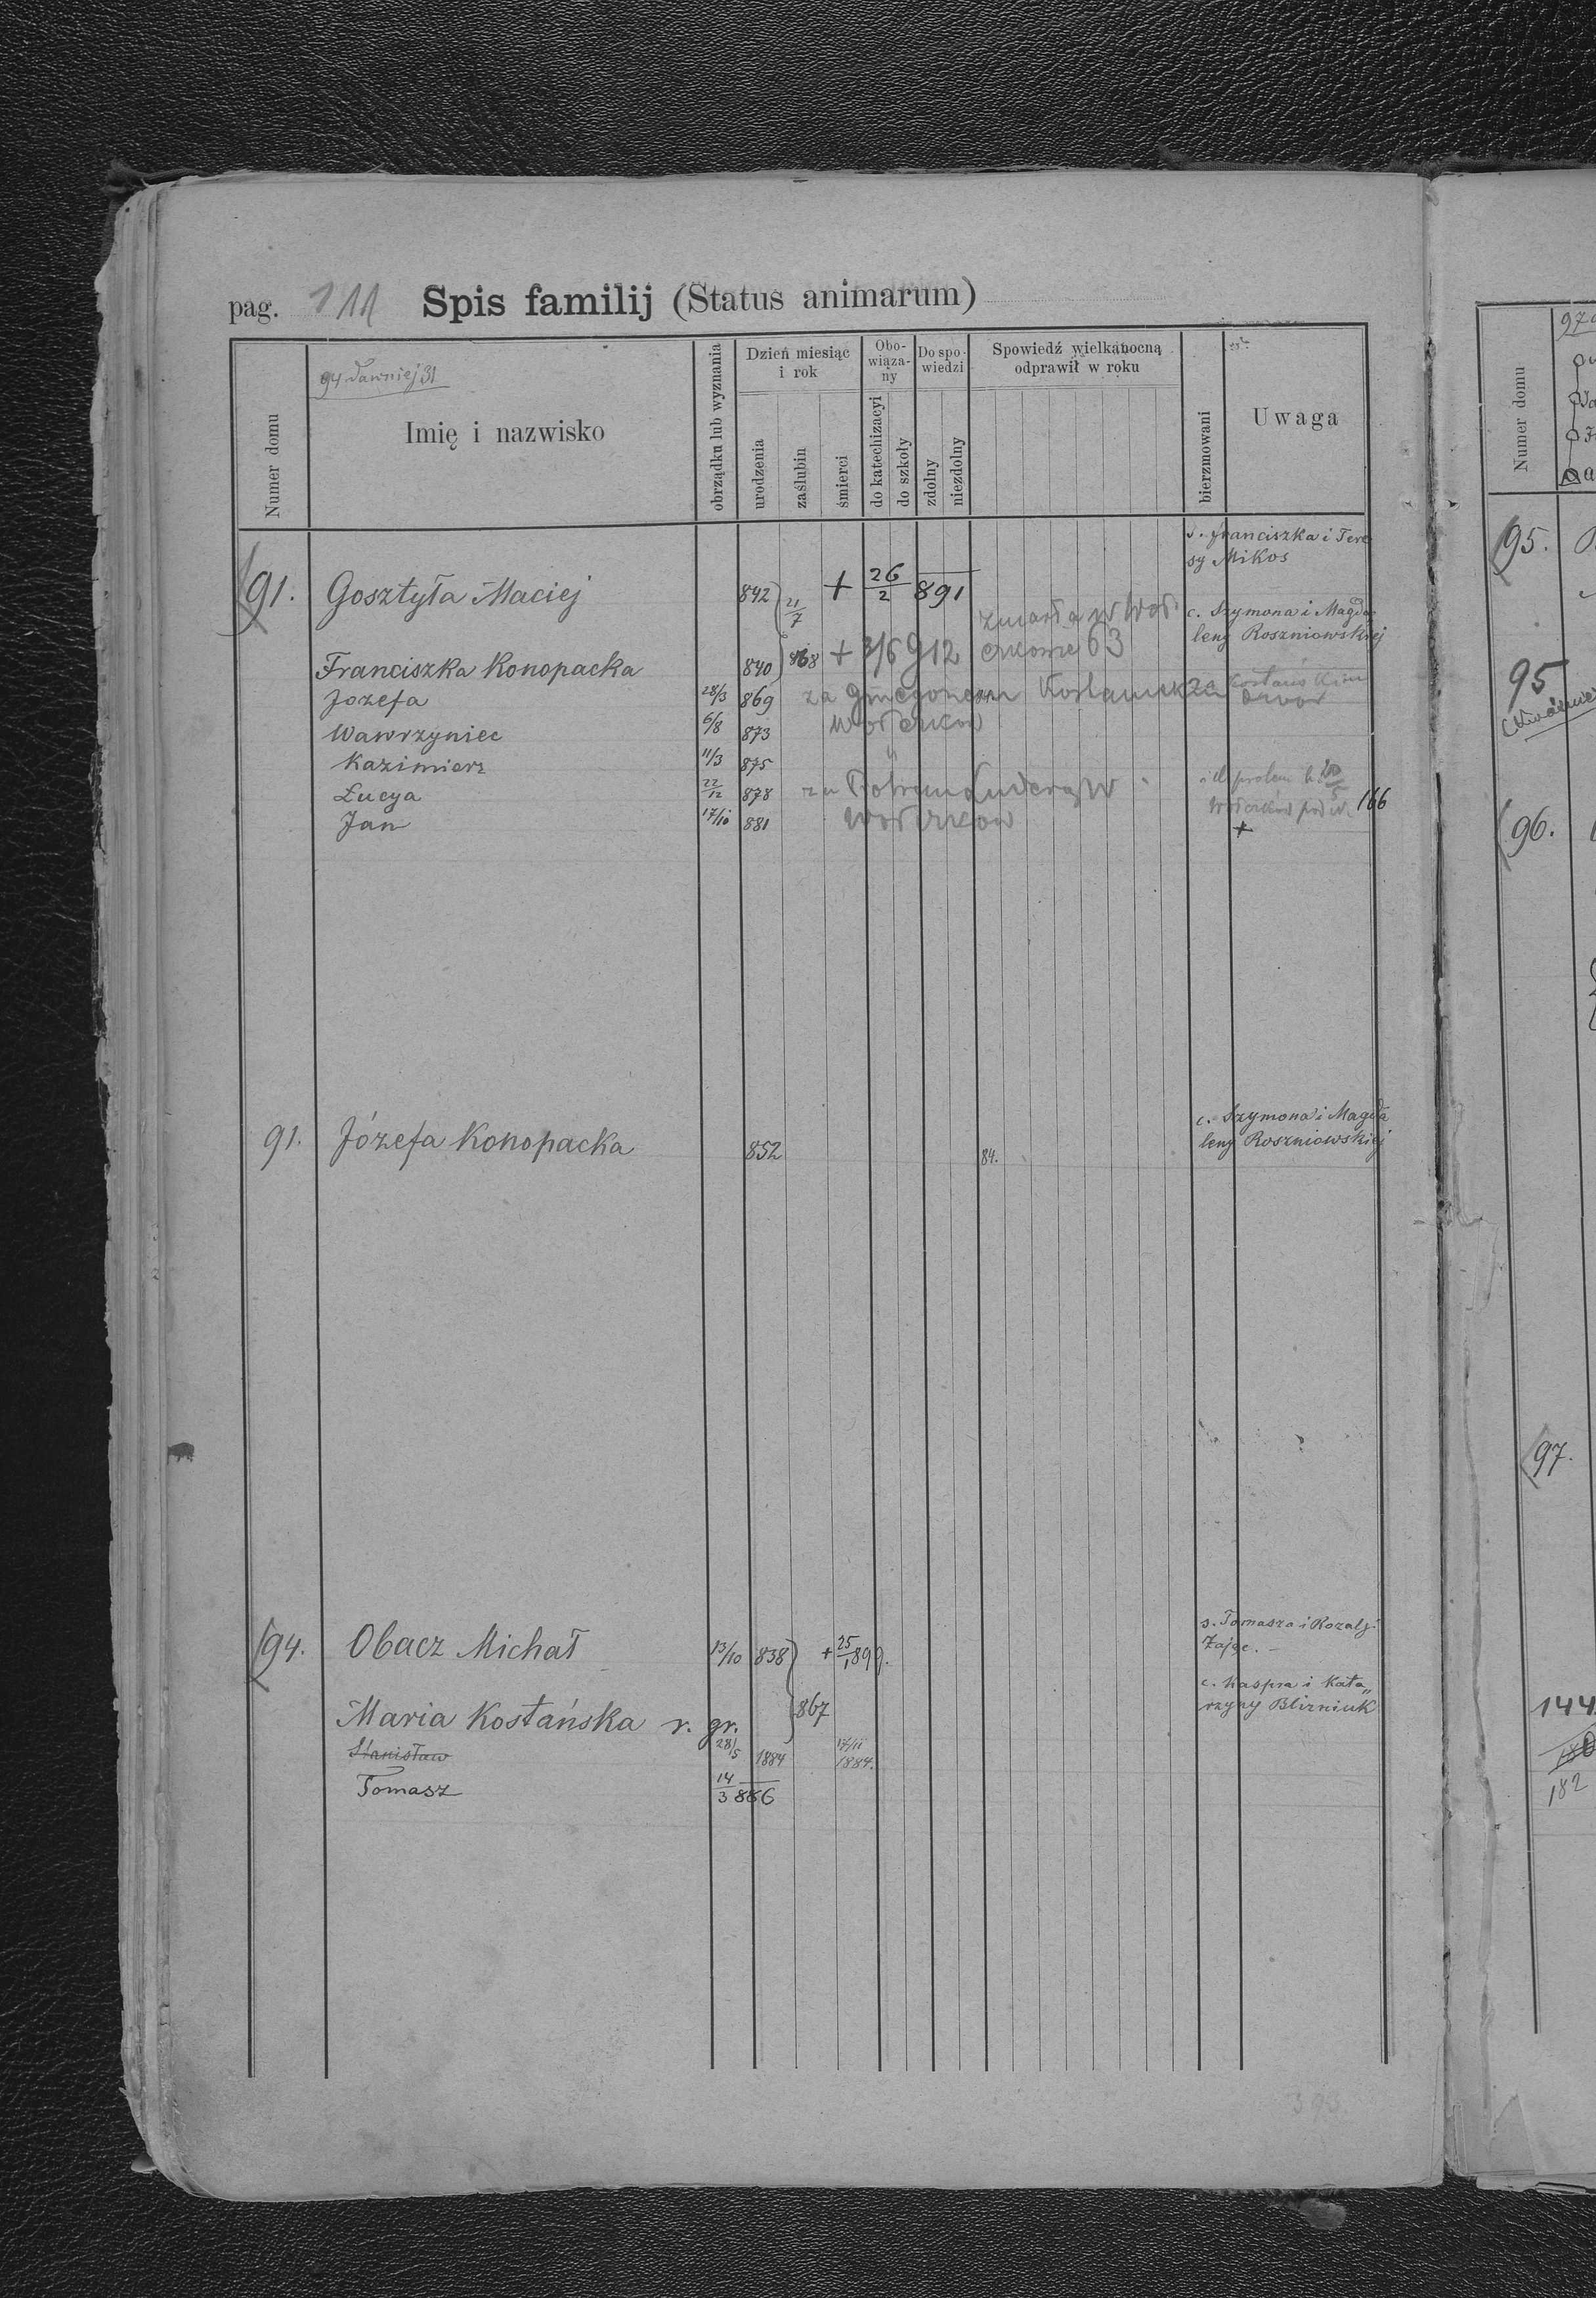 pag. 111 Spis familij (Status animarum)
94 dawniej 31
Numer domu
Imię i nazwisko
obrządku lub wyznania
Dzień miesiąc i rok
urodzenia
zaślubin
śmierci
Obo-wiąza-ny
do katechizacyi
do szkoły
Do spo-wiedzi
zdolny
niezdolny
Spowiedź wielkanocną odprawił w roku
bierzmowani
Uwaga
s. Franciszka i Tere
sy Mikos
91. Gosztyła Maciej 842 21/7 + 26/2 891
c. Szymona i Magda
leny Roszniowskiej
zmarła w
Franciszka Konopacka 840 868 + 3/6 912 63
Jozefa 28/3 869 za
Wawrzyniec 6/8 873
Kazimierz 11/3 875
Łucya 22/12 878 za 166
Jan 17/10 881 +
c. Szymona i Magda
leny Roszniowskiej
91. Józefa Konopacka 852 84.
s. Tomasza i Rozalji
Zając.
94. Obacz Michał 13/10 838 + 25/1 899.
c. Kaspra i Kata„
rzyny Blizniuk
Maria Kostańska r. gr. 867
Stanisław 28/5 1884 17/11 1884.
Tomasz 14/3 886
393
Numer domu
95.
95
96.
97.
144
180
182